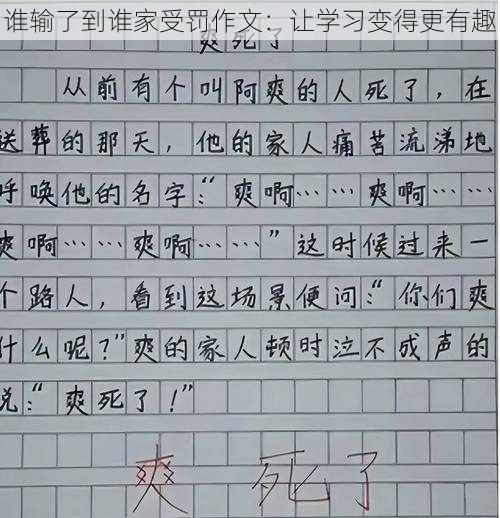 谁输了到谁家受罚作文：让学习变得更有趣
爽死了
从前有个叫阿爽的人死了，在
送葬的那天，他的家人痛苦流涕地
呼唤他的名字：“爽啊……爽啊……
爽啊……爽啊……”这时候过来一
个路人，看到这场景便问：“你们爽
什么呢？”爽的家人顿时泣不成声的
说：“爽死了！”
爽 死了